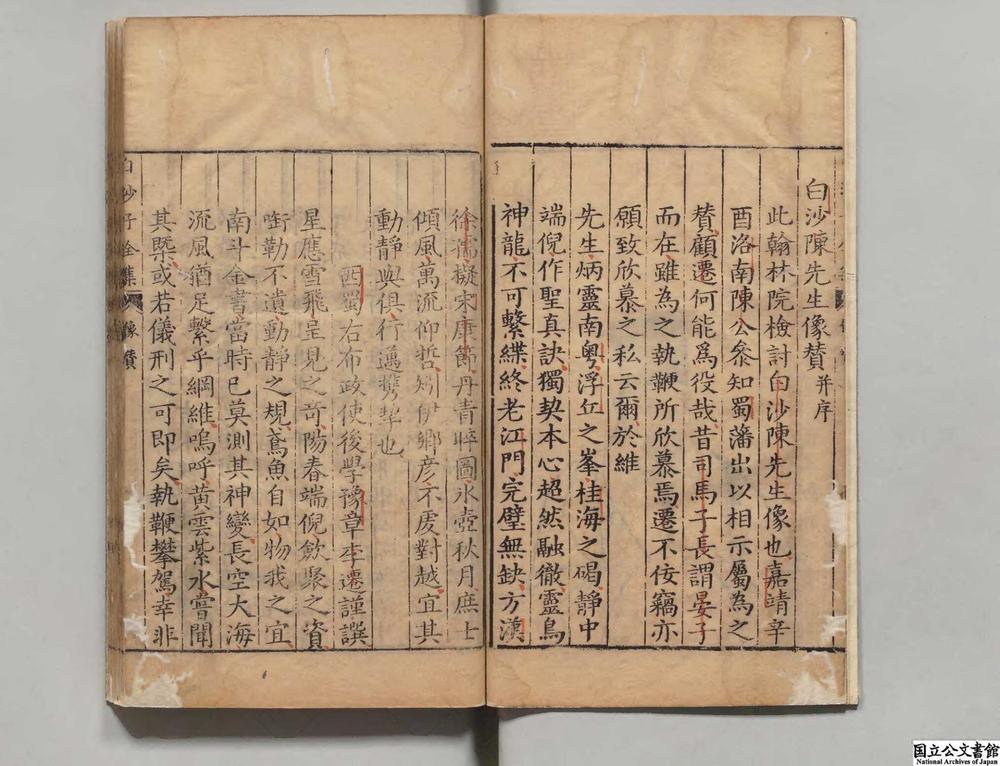 白沙陳先生像贊 并序
此翰林院檢討白沙陳先生像也嘉靖辛
酉洛南陳公叅知蜀藩出以相示屬為之
贊顧遷何能爲役哉昔司馬子長謂晏子
而在雖為之執鞭所欣慕焉遷不佞竊亦
願致欣慕之私云爾於維
先生炳靈南粵浮丘之峯桂海之碣靜中
端倪作聖真訣獨契本心超然融徹靈鳥
神龍不可繫緤終老江門完璧無缺方漢
徐孺擬宋康節丹青晬圖氷壺秋月庶士
傾風萬流仰哲矧伊鄉彦不虔對越宜其
動靜與俱行邁攜挈也
西蜀右布政使後學豫章李遷謹譔
星應雪飛呈見之竒陽春端倪歛聚之資
銜勒不遺動靜之規鳶魚自如物我之宜
南斗金書當時已莫測其神變長空大海
流風猶足繫乎綱維嗚呼黄雲紫水嘗聞
其槩或若儀刑之可即矣執鞭攀駕幸非
白沙子全集 像贊
国立公文書館
National Archives of Japan